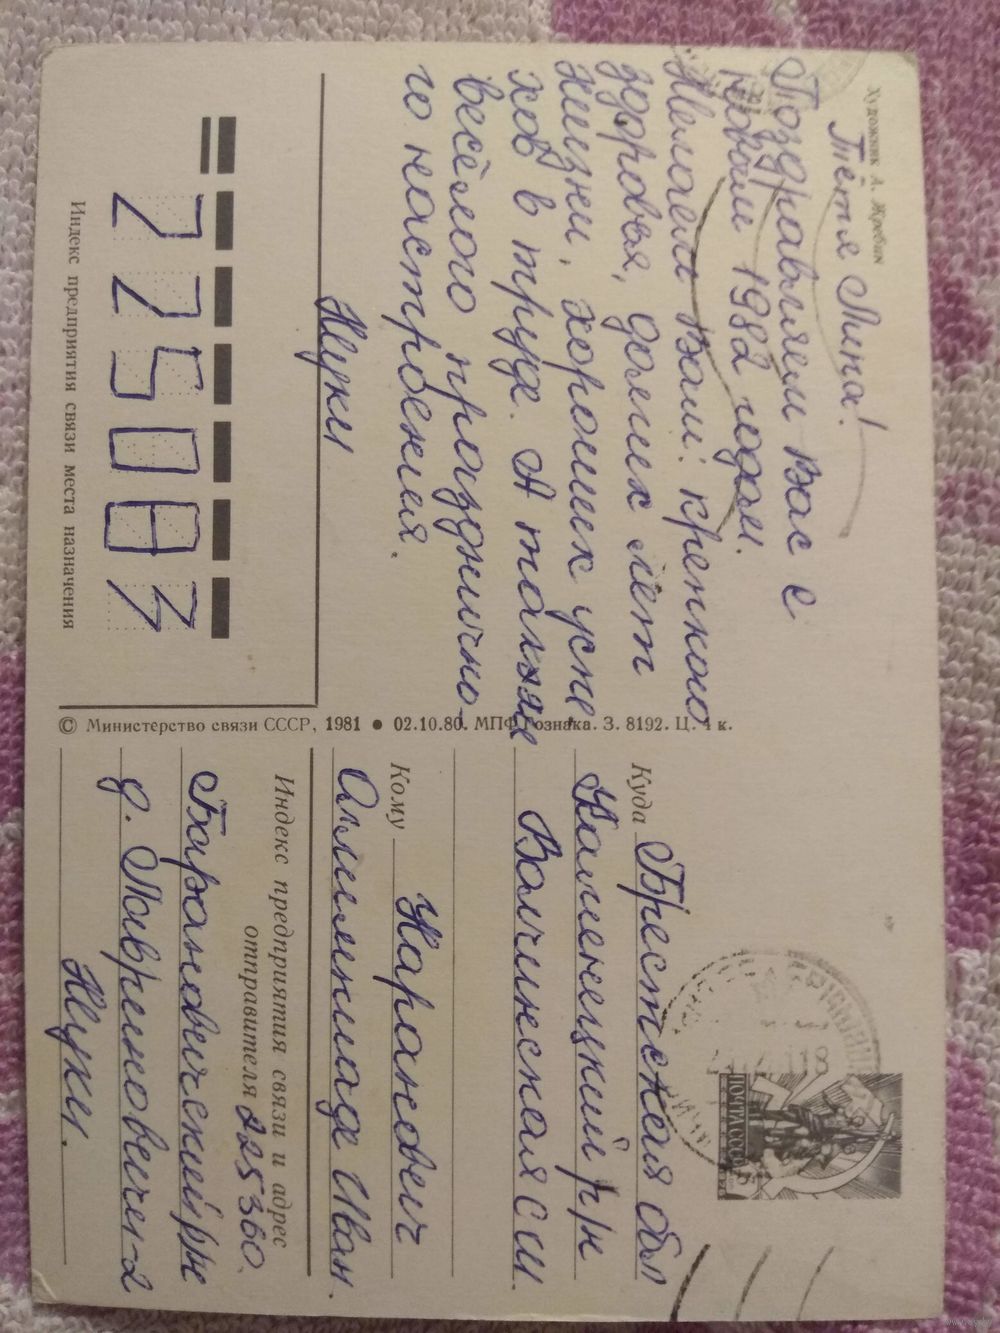 Художник А. Жребин
Тётя Лина!
Поздравляем вас с
новым 1982 годом.
Желаем вам: крепкого
здоровья, долгих лет
жизни, хороших успе
хов в труде. А также
весёлого празднично-
го настроения.
Жуки
225087
Индекс предприятия связи места назначения
© Министерство связи СССР, 1981 • 02.10.80. МПФ Гознака. З. 8192. Ц. 4 к.
ПОЧТА СССР
Куда Брестская обл
Каменецкий р-н
Волчинская с ш
Кому Каранович
Иван.
Индекс предприятия связи и адрес
отправителя 225360.
Барановичский рн
д. Лавриновичи-2
Жуки.